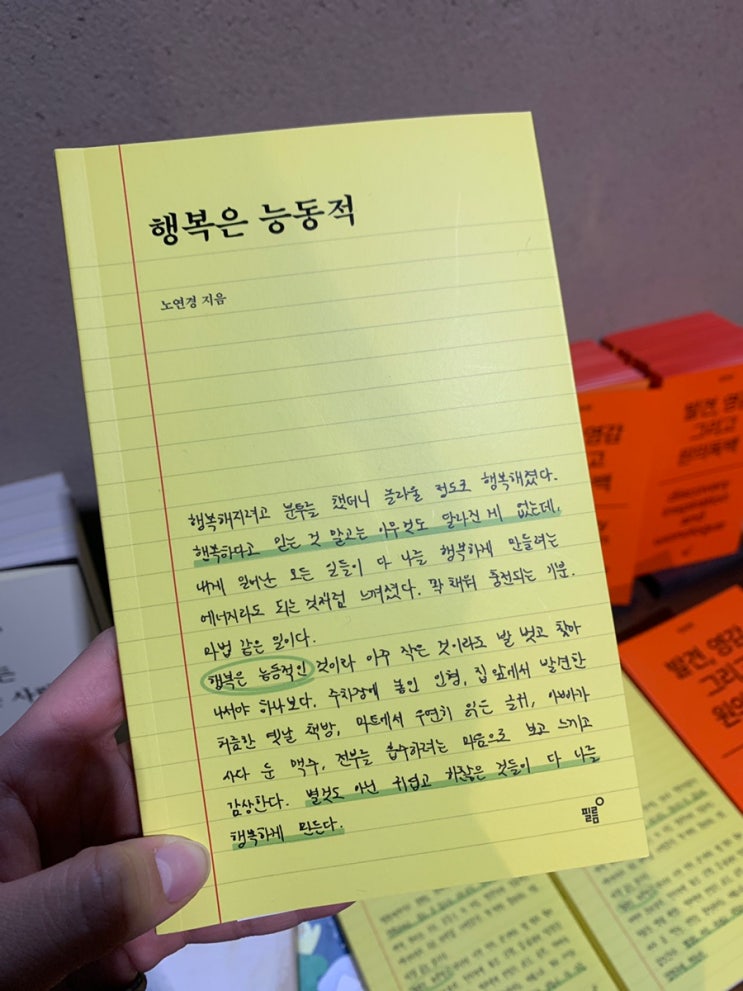 행복은 능동적
노연경 지음
행복해지려고 분투를 했더니 놀라울 정도로 행복해졌다.
행복하다고 믿는 것 말고는 아무것도 달라진 게 없는데,
내게 일어난 모든 일들이 다 나를 행복하게 만들려는
에너지라도 되는 것처럼 느껴졌다. 꽉 채워 충전되는 기분.
마법 같은 일이다.
행복은 능동적인 것이라 아주 작은 것이라도 발 벗고 찾아
나서야 하나보다. 주차장에 놓인 인형, 집 앞에서 발견한
허름한 옛날 책방, 마트에서 우연히 읽은 글귀, 아빠가
사다 둔 맥주, 전부를 흡수하려는 마음으로 보고 느끼고
감상한다. 별것도 아닌 귀엽고 하찮은 것들이 다 나를
행복하게 만든다.
필름
발견, 영감
그리고
원의독백
discovery,
inspiration
and
발견, 영감
그리고